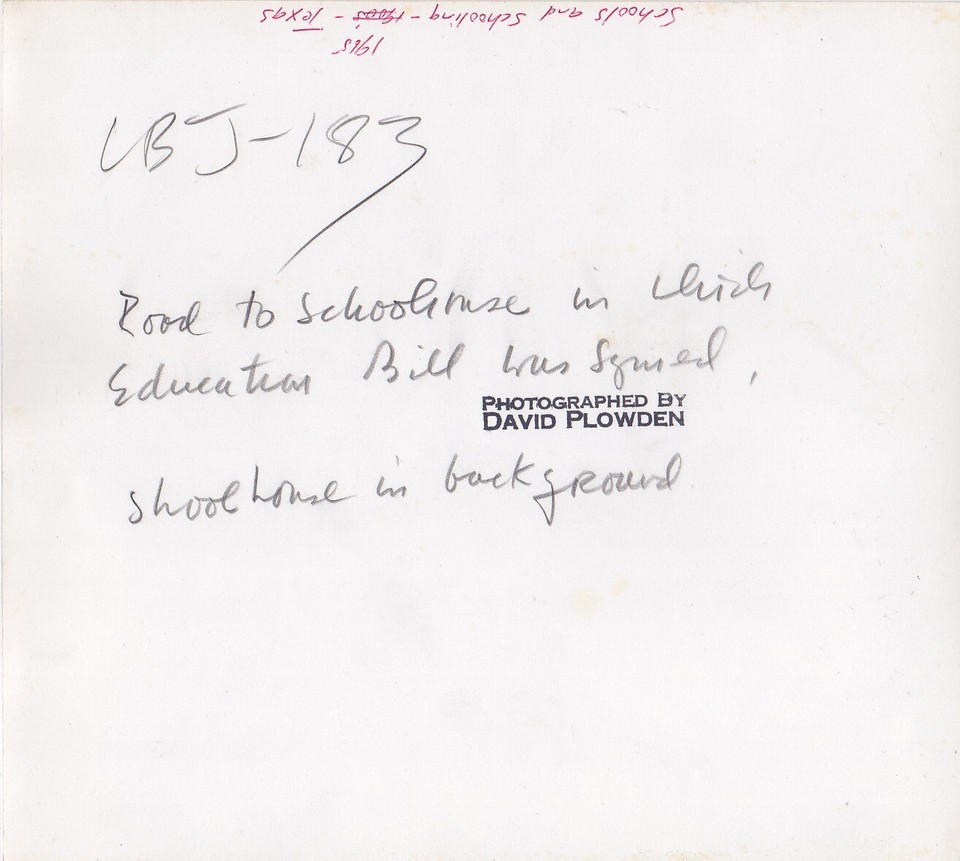 Schools and Schooling - 1900s - Texas
1965
LBJ-183
Road to Schoolhouse in which
Education Bill was Signed,
PHOTOGRAPHED BY
DAVID PLOWDEN
Shoolhouse in background